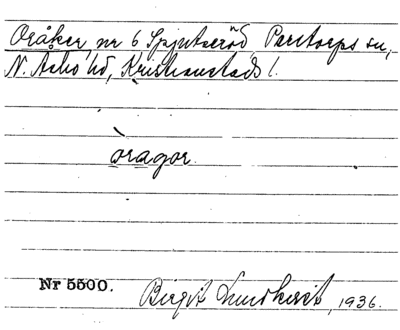 Oråker nr 6 Spjutseröd, Perstorps sn,
N. Åsbo hd, Kristianstads l.
òragor.
Nr 5500.
Birgit Lundkvist, 1936.